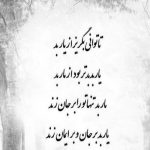 تا توانی بگریز از یار بد
یار بد بدتر بود از مار بد
مار بد تنها تو را بر جان زند
یار بد بر جان و بر ایمان زند